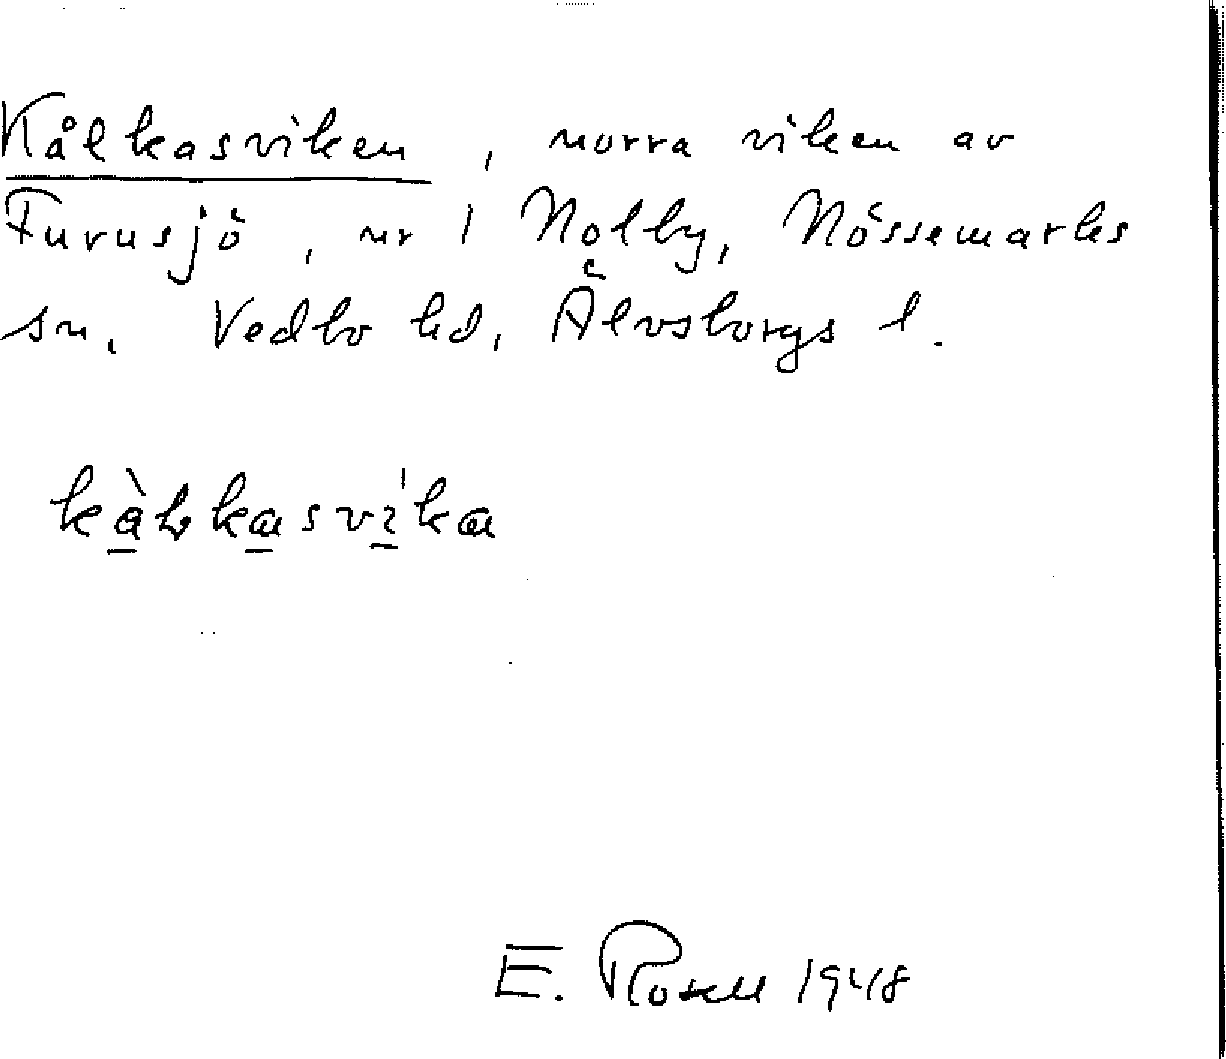 Kålkasviken, norra viken av
Furusjö, nr 1 Nolby, Nössemarks
sn. Vedbo hd, Älvsborgs l.
E. Rosell 1948